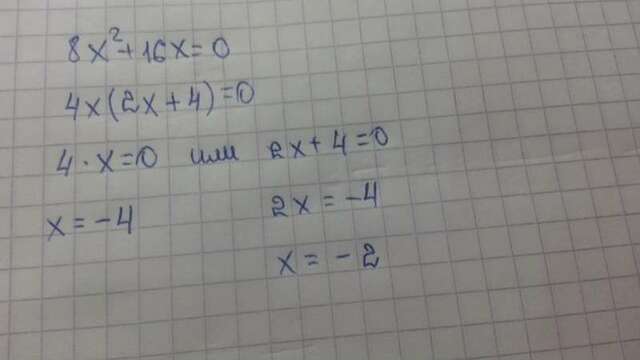 8x²+16x=0
4x(2x+4)=0
4·x=0 или 2x+4=0
x=-4 2x=-4
x=-2